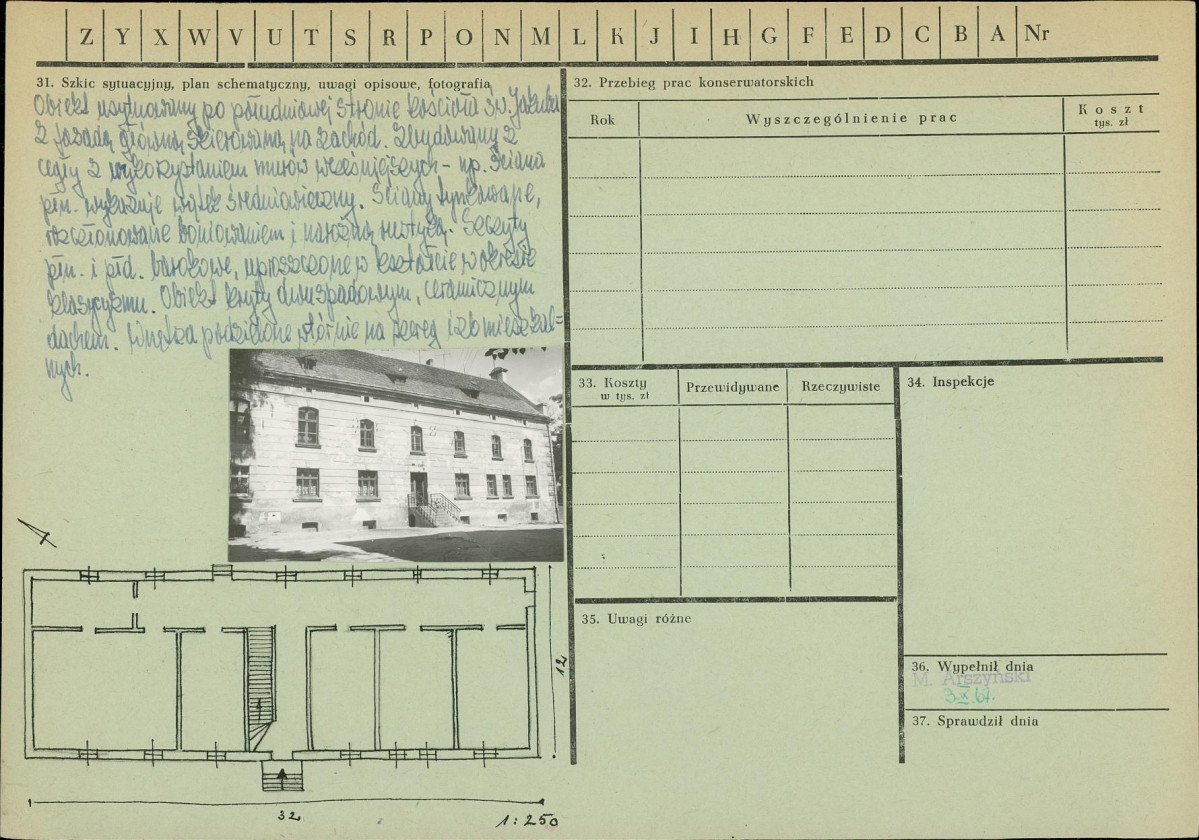 Z Y X W V U T S R P O N M L K J I H G F E D C B A Nr
31. Szkic sytuacyjny, plan schematyczny, uwagi opisowe, fotografia
Obiekt usytuowany po południowej stronie kościoła św. Jakuba
z fasadą główną skierowaną na zachód. Zbudowany z
cegły z wykorzystaniem murów wcześniejszych - np. ściana
płn. wykazuje wątek średniowieczny. Ściany tynkowane,
rozczłonowane boniowaniem i narożną rustyką. Szczyty
płn. i płd. barokowe, uproszczone w kształcie w okresie
klasycyzmu. Obiekt kryty dwuspadowym, ceramicznym
dachem. Wnętrza podzielone wtórnie na szereg izb mieszkal=
nych.
12
32
1:250
32. Przebieg prac konserwatorskich
Rok
Wyszczególnienie prac
Koszt
tys. zł
33. Koszty
w tys. zł
Przewidywane
Rzeczywiste
34. Inspekcje
35. Uwagi różne
36. Wypełnił dnia
M. Arszyński
3.X.67.
37. Sprawdził dnia